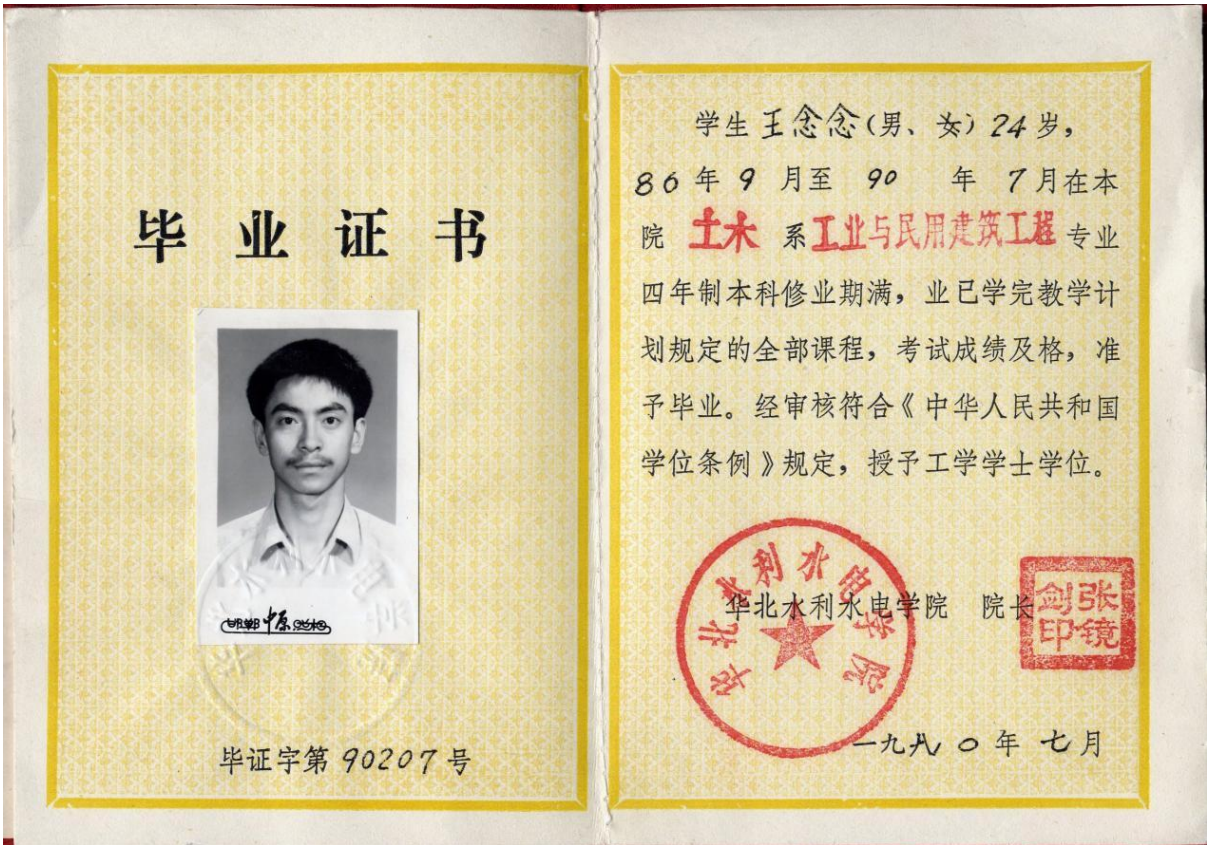 毕业证书
邯郸中原照相
毕证字第 90207 号
学生 王念念 (男、女) 24 岁，
86 年 9 月至 90 年 7 月在本
院 土木 系 工业与民用建筑工程 专业
四年制本科修业期满，业已学完教学计
划规定的全部课程，考试成绩及格，准
予毕业。经审核符合《中华人民共和国
学位条例》规定，授予工学学士学位。
华北水利水电学院
华北水利水电学院 院长
张镜剑印
一九九〇年 七月